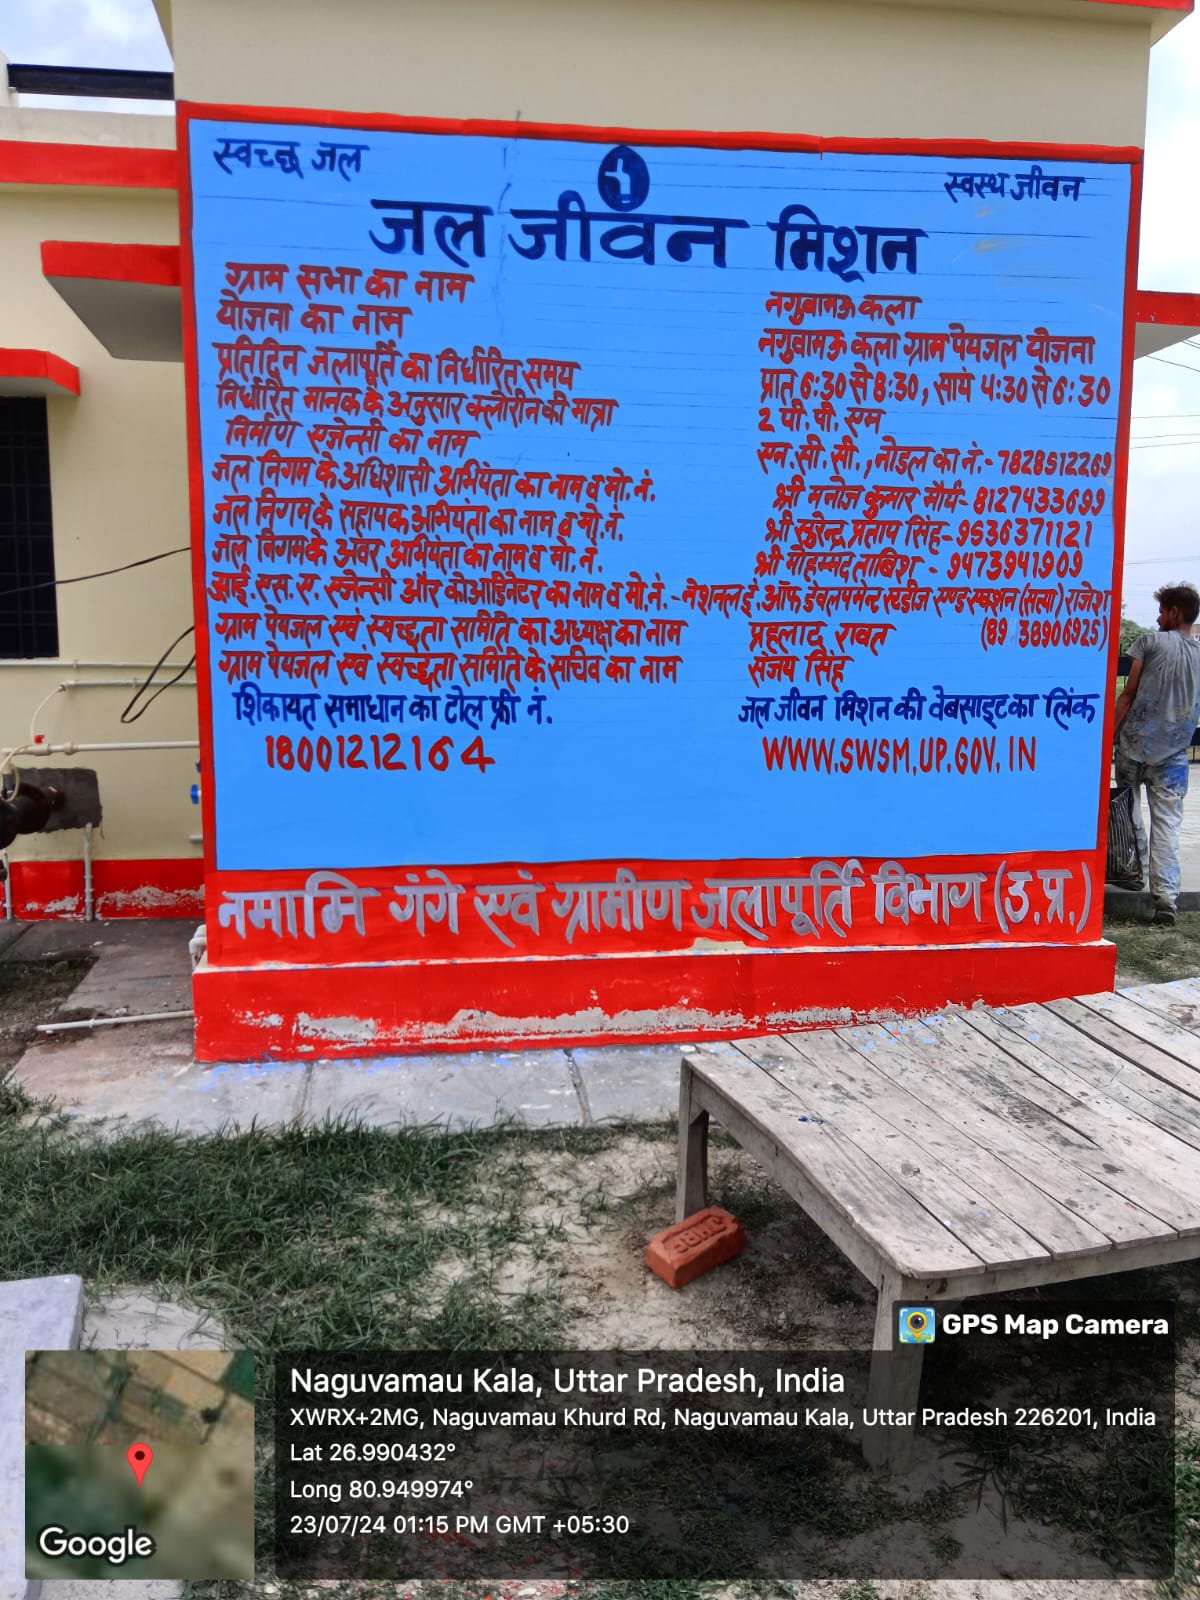 स्वच्छ जल
स्वस्थ जीवन
जल जीवन मिशन
ग्राम सभा का नाम नगुवामऊ कला
योजना का नाम नगुवामऊ कला ग्राम पेयजल योजना
प्रतिदिन जलापूर्ति का निर्धारित समय प्रात 6:30 से 8:30, सायं 4:30 से 6:30
निर्धारित मानक के अनुसार क्लोरीन की मात्रा 2 पी. पी. एम
निर्माण एजेन्सी का नाम एन. सी. सी., नोडल का नं.- 7828512269
जल निगम के अधिशासी अभियंता का नाम व मो. नं. श्री मनोज कुमार मौर्य- 8127433699
जल निगम के सहायक अभियंता का नाम व मो. नं. श्री सुरेन्द्र प्रताप सिंह- 9536371121
जल निगम के अवर अभियंता का नाम व मो. नं. श्री मोहम्मद ताबिश - 9473941909
आई. एस. ए. एजेन्सी और कोआडिनेटर का नाम व मो. नं. - नेशनल इं. ऑफ डेवलपमेन्ट स्टडीज एण्ड एक्शन (सत्या) राजेश
(89 38906925)
ग्राम पेयजल एवं स्वच्छता समिति का अध्यक्ष का नाम प्रहलाद रावत
ग्राम पेयजल एवं स्वच्छता समिति के सचिव का नाम संजय सिंह
शिकायत समाधान का टोल फ्री नं. जल जीवन मिशन की वेबसाइट का लिंक
18001212164 WWW.SWSM.UP.GOV.IN
नमामि गंगे एवं ग्रामीण जलापूर्ति विभाग (उ.प्र.)
GPS Map Camera
Naguvamau Kala, Uttar Pradesh, India
XWRX+2MG, Naguvamau Khurd Rd, Naguvamau Kala, Uttar Pradesh 226201, India
Lat 26.990432°
Long 80.949974°
23/07/24 01:15 PM GMT +05:30
Google